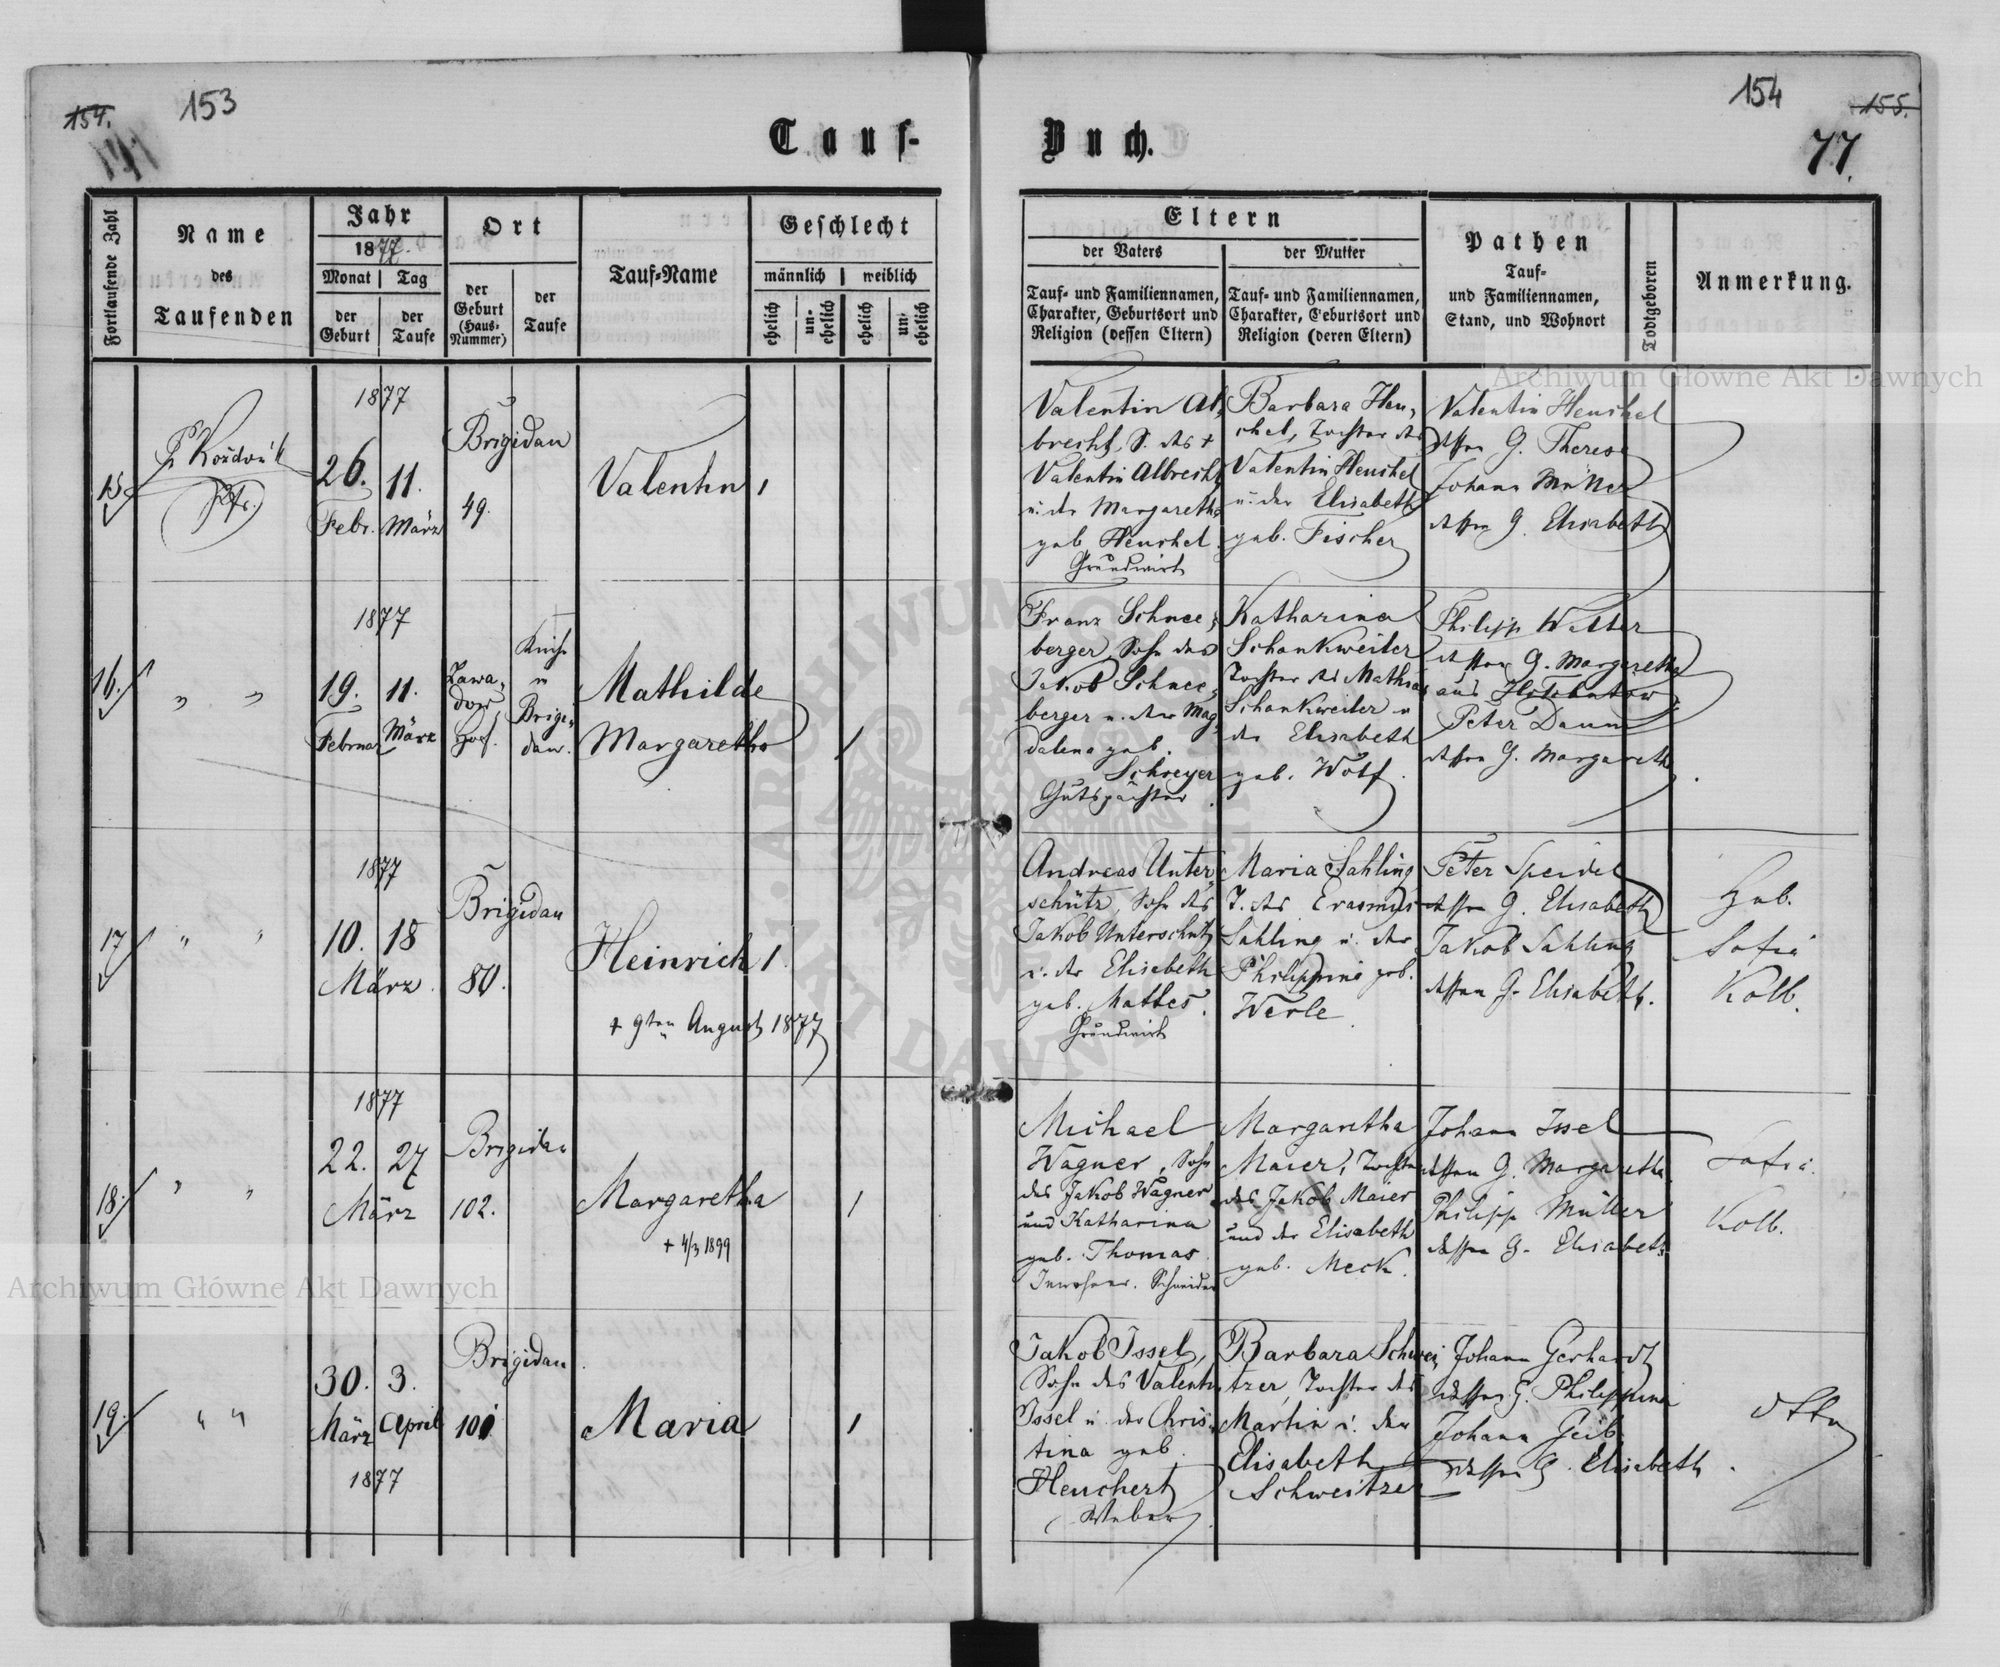 154.
153
154
155.
77.
Tauf-
Buch.
Fortlaufende Zahl
Name
des
Taufenden
Jahr
1877.
Monat
Tag
der
Geburt
der
Taufe
Ort
der
Geburt
(Haus-
Nummer)
der
Taufe
Tauf-Name
Geschlecht
männlich
weiblich
ehelich
un-
ehelich
ehelich
un-
ehelich
Eltern
der Vaters
der Mutter
Tauf- und Familiennamen,
Charakter, Geburtsort und
Religion (dessen Eltern)
Tauf- und Familiennamen,
Charakter, Geburtsort und
Religion (deren Eltern)
Pathen
Tauf-
und Familiennamen,
Stand, und Wohnort
Todtgeboren
Anmerkung.
15
Pfr.
1877
26.
Febr.
11.
März
Brigidau
49.
Valentin
1
Valentin Al-
brecht, S. des +
Valentin Albrecht
u. der Margaretha
geb. Heuchel
Grundwirt
Barbara Heu-
chel, Tochter des
Valentin Heuchel
u. der Elisabeth
geb. Fischer
Valentin Heuchel
dessen G. Therese
Johann Müller
dessen G. Elisabeth
16.
" "
1877
19.
Februar
11.
März
Kirche
in
Brigi-
dau.
Mathilde
Margaretha
1
Franz Schnee-
berger, Sohn des
Jakob Schnee-
berger u. der Mag-
dalena geb.
Schreyer
Gutspächter
Katharina
Schankweiler
Tochter des Mathias
Schankweiler u
der Elisabeth
geb. Wolf.
Philipp
dessen G. Margaretha
aus
Peter Daum
dessen G. Margareth.
17
" "
1877
10.
18
März
Brigidau
80.
Heinrich
1.
+ 9ten August 1877
Andreas Unter-
schütz, Sohn des
Jakob Unterschütz
u. der Elisabeth
geb. Mattes.
Grundwirt
Maria Sahling
T. des Erasmus
Sahling u. der
Philippine geb.
Werle
Peter Speidel
dessen G. Elisabeth
Jakob Sahling
dessen G. Elisabeth.
Heb.
Sofia
Kolb.
18.
" "
1877
22.
27
März
Brigidau
102.
Margaretha
+ 4/3 1899
1
Michael
Wagner, Sohn
des Jakob Wagner
und Katharina
geb. Thomas
Inwohner. Schneider
Margaretha
Maier, Tochter
des Jakob Maier
und der Elisabeth
geb. Meck.
Johann Issel
dessen G. Margaretha
Philipp Müller
dessen G. Elisabeth
Sofia
Kolb.
19.
" "
30.
März
3.
April
1877
Brigidau
101
Maria
1
Jakob Issel,
Sohn des Valentin
Issel u. der Chris-
tina geb.
Heuchert
Weber
Barbara Schwei-
tzer, Tochter des
Martin u. der
Elisabeth
Schweitzer
Johann Gerhardt
dessen G. Philippina
Johann Geib
dessen G. Elisabeth.
Archiwum Główne Akt Dawnych
Archiwum Główne Akt Dawnych
ARCHIWUM
AKT DAWN